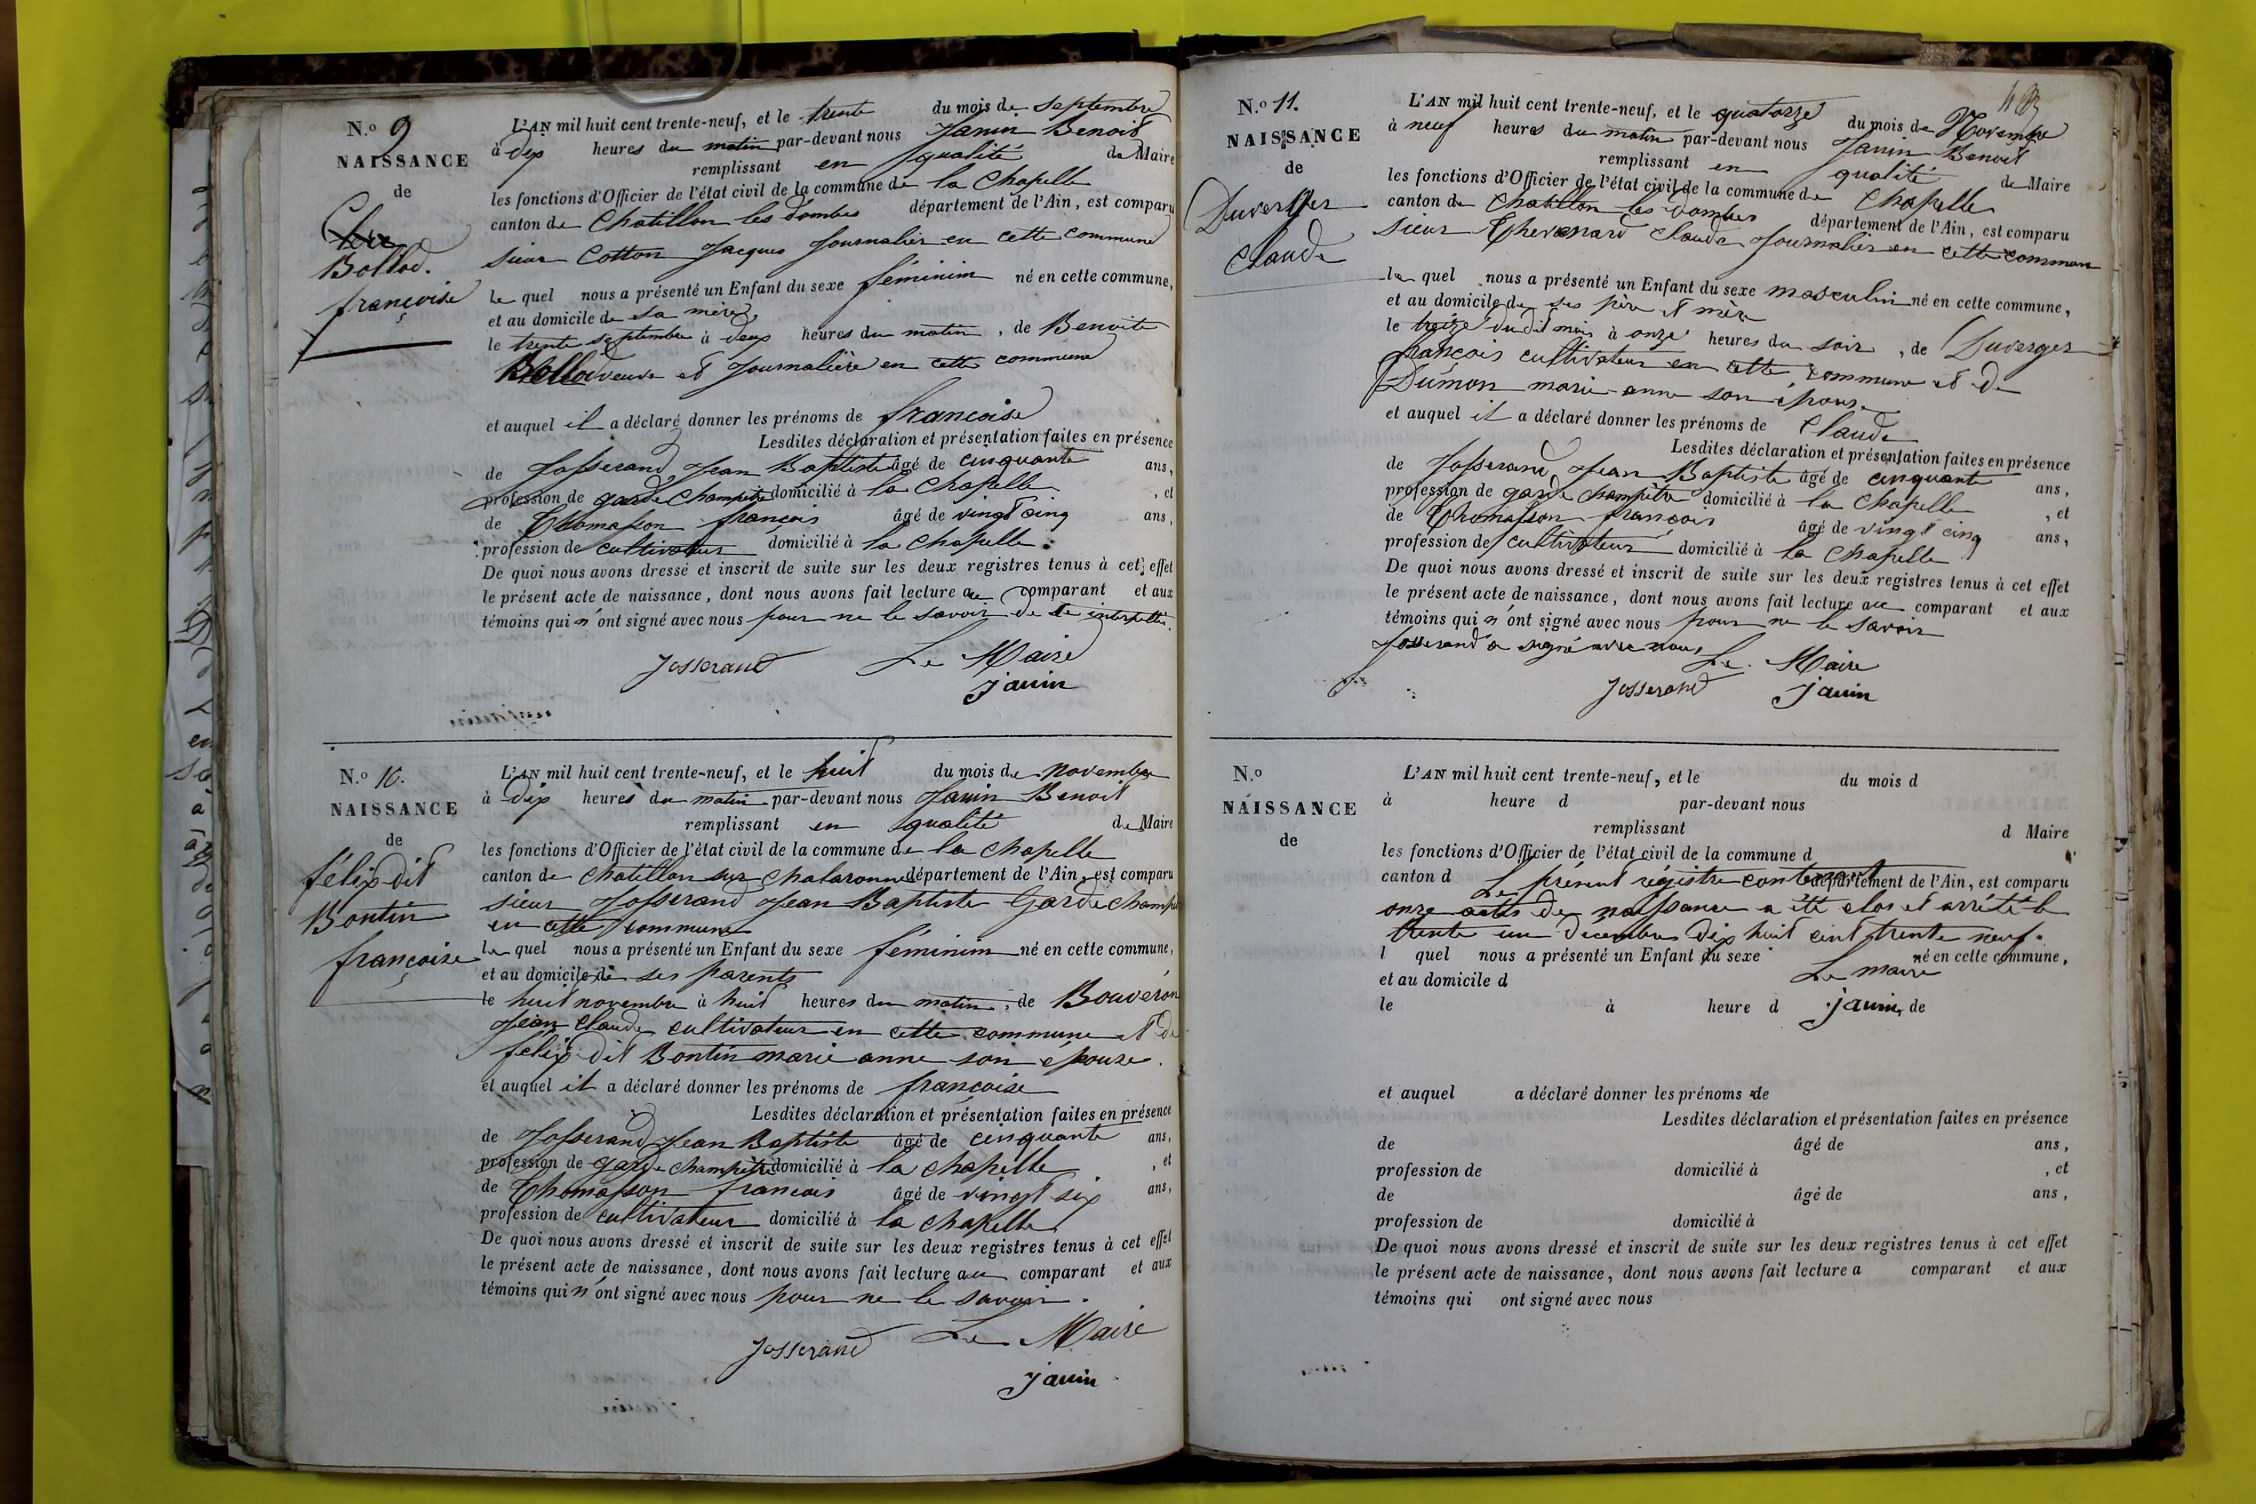 N.o 9
NAISSANCE
de
Bollod.
françoise
L'AN mil huit cent trente-neuf, et le trente du mois de septembre
à dix heures du matin par-devant nous Janin Benoit
remplissant en qualité de Maire
les fonctions d'Officier de l'état civil de la commune de la Chapelle
canton de Chatillon les dombes département de l'Ain, est comparu
sieur Cotton Jacques Journalier en cette commune
le quel nous a présenté un Enfant du sexe féminim né en cette commune,
et au domicile de sa mère
le trente septembre à deux heures du matin, de Benoite
Bollod veuve et Journalière en cette commune
et auquel il a déclaré donner les prénoms de françoise
Lesdites déclaration et présentation faites en présence
de Josserand Jean Baptiste âgé de cinquante ans,
profession de garde Champêtre domicilié à la Chapelle, et
de Thomasson françois âgé de vingt cinq ans,
profession de cultivateur domicilié à la Chapelle
De quoi nous avons dressé et inscrit de suite sur les deux registres tenus à cet effet
le présent acte de naissance, dont nous avons fait lecture au comparant et aux
témoins qui n'ont signé avec nous pour ne le savoir de ce interpellé.
Josserand Le Maire
janin
N.o 10.
NAISSANCE
de
félix dit
Bontin
françoise
L'AN mil huit cent trente-neuf, et le huit du mois de novembre
à dix heures du matin par-devant nous Janin Benoit
remplissant en qualité de Maire
les fonctions d'Officier de l'état civil de la commune de la Chapelle
canton de Chatillon sur Chalaronne département de l'Ain, est comparu
sieur Josserand Jean Baptiste Garde champêt
en cette commune
le quel nous a présenté un Enfant du sexe féminim né en cette commune,
et au domicile de ses parents
le huit novembre à huit heures du matin, de Bouveron
Jean Claude cultivateur en cette commune et de
félix dit Bontin marie anne son épouse.
et auquel il a déclaré donner les prénoms de françoise
Lesdites déclaration et présentation faites en présence
de Josserand Jean Baptiste âgé de cinquante ans,
profession de garde champêtre domicilié à la chapelle, et
de Thomasson francois âgé de vingt six ans,
profession de cultivateur domicilié à la chapelle
De quoi nous avons dressé et inscrit de suite sur les deux registres tenus à cet effet
le présent acte de naissance, dont nous avons fait lecture au comparant et aux
témoins qui n'ont signé avec nous pour ne le savoir.
Josserand Le Maire
janin
N.o 11.
NAISSANCE
de
Duverger
Claude
L'AN mil huit cent trente-neuf, et le quatorze du mois de Novembre
à neuf heures du matin par-devant nous Janin Benoit
remplissant en qualité de Maire
les fonctions d'Officier de l'état civil de la commune de Chapelle
canton de Chatillon les dombes département de l'Ain, est comparu
sieur Thevenard Claude Journalier en cette commun
le quel nous a présenté un Enfant du sexe masculin né en cette commune,
et au domicile de ses père et mère
le treize dudit mois à onze heures du soir, de Duverger
françois cultivateur en cette commune et de
Dumon marie-anne son épouse
et auquel il a déclaré donner les prénoms de Claude
Lesdites déclaration et présentation faites en présence
de Josserand Jean Baptiste âgé de cinquante ans,
profession de garde champêtre domicilié à la Chapelle, et
de Thomasson françois âgé de vingt cinq ans,
profession de cultivateur domicilié à la Chapelle
De quoi nous avons dressé et inscrit de suite sur les deux registres tenus à cet effet
le présent acte de naissance, dont nous avons fait lecture au comparant et aux
témoins qui n'ont signé avec nous pour ne le savoir
Josserand a signé avec nous Le Maire
Josserand janin
N.o
NAISSANCE
de
L'AN mil huit cent trente-neuf, et le du mois d
à heure d par-devant nous
remplissant d Maire
les fonctions d'Officier de l'état civil de la commune d
canton d département de l'Ain, est comparu
Le présent régistre contenant
onze actes de naissance a été clos et arrêté le
trente un decembre dix huit cent trente neuf.
l quel nous a présenté un Enfant du sexe né en cette commune,
Le maire
et au domicile d
le à heure d janin, de
et auquel a déclaré donner les prénoms de
Lesdites déclaration et présentation faites en présence
de âgé de ans,
profession de domicilié à , et
de âgé de ans,
profession de domicilié à
De quoi nous avons dressé et inscrit de suite sur les deux registres tenus à cet effet
le présent acte de naissance, dont nous avons fait lecture a comparant et aux
témoins qui ont signé avec nous